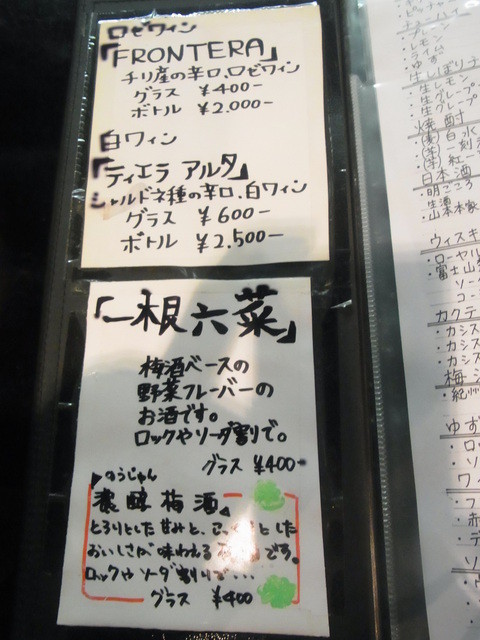 ロゼワイン
「FRONTERA」
チリ産の辛口、ロゼワイン
グラス ¥400-
ボトル ¥2.000-
白ワイン
「ティエラ アルタ」
シャルドネ種の辛口、白ワイン
グラス ¥600-
ボトル ¥2.500-
「一根六菜」
梅酒ベースの
野菜フレーバーの
お酒です。
ロックやソーダ割で。
グラス ¥400-
のうじゅん
濃醇梅酒
とろりとした甘みと、こっくりとした
おいしさが味わえる です。
ロックやソーダ割りで...
グラス ¥400
・レモン
・ライム
・ゆず
生しぼり
・生レモン
・生グレープ
・生グレープ
焼酎
・(麦)白水
・(芋)一刻
・(芋)紅一
日本酒
・明ごころ
・生酒
・山本本家
ウィスキ
・ローヤル
・富士山
ソー
コー
カクテ
・カシス
・カシス
・カシス
梅
・紀州
ゆず
・ロ
・ソ
ワイ
・フ
・赤
・テ
ソ